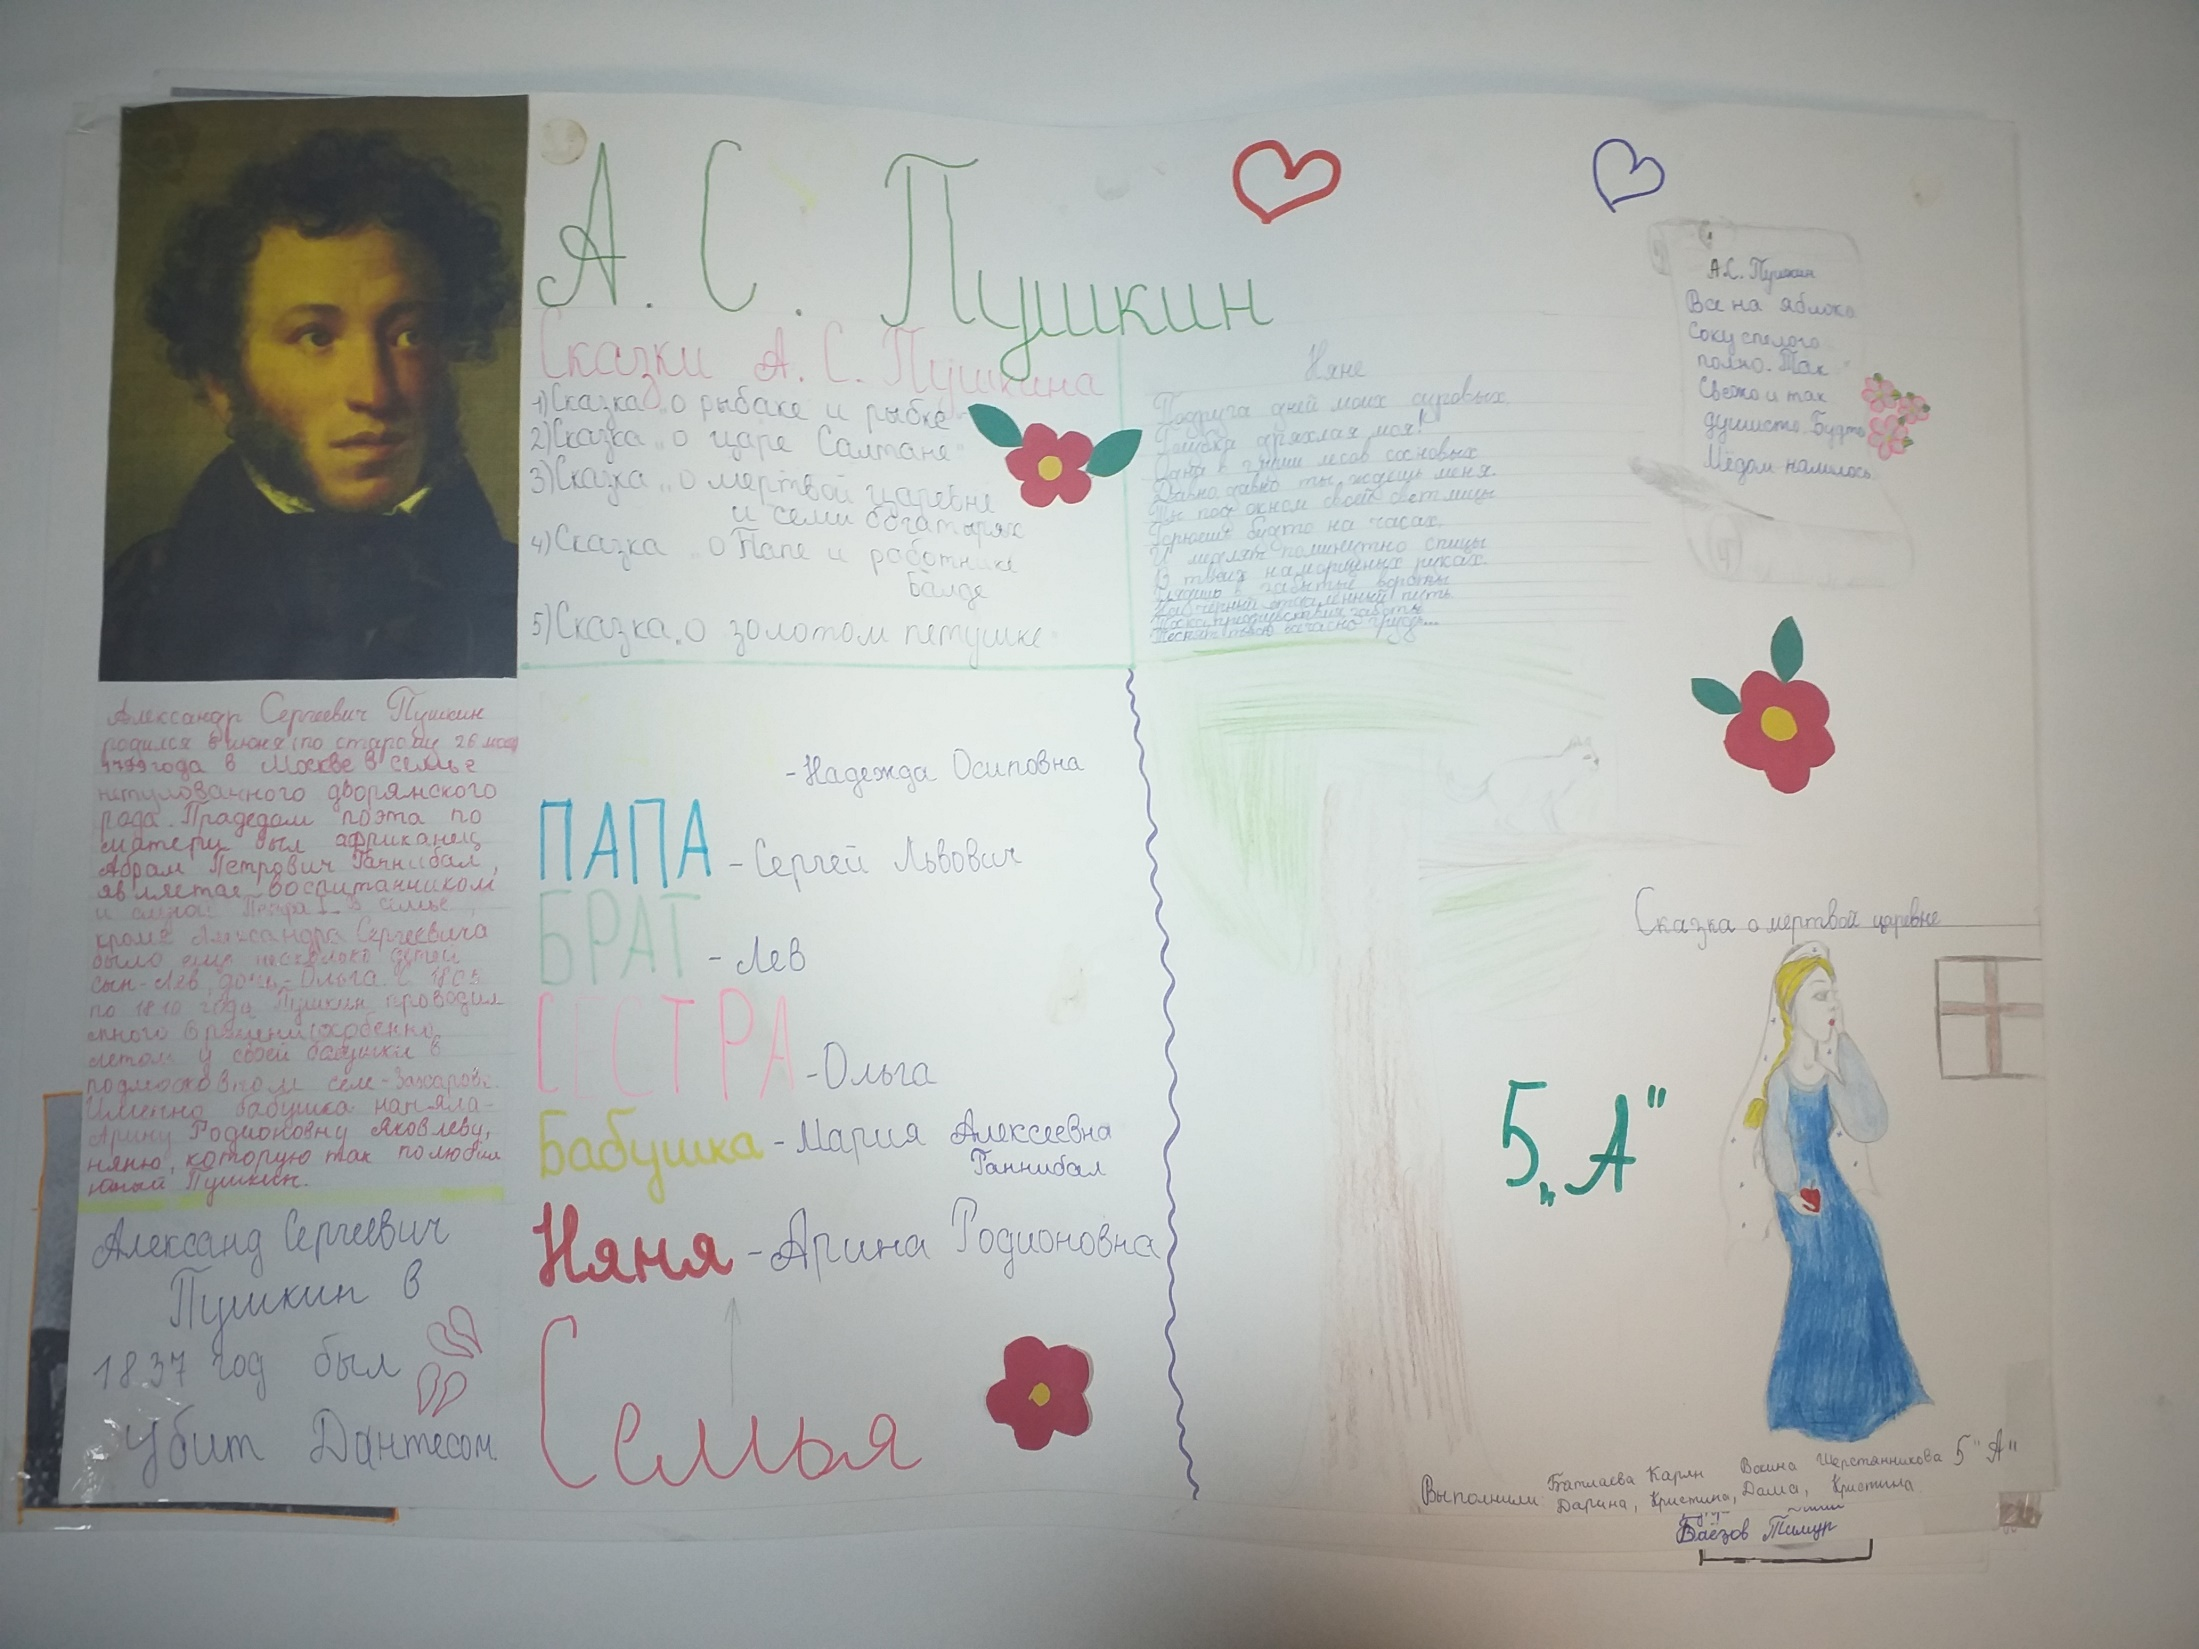 А. С. Пушкин
Сказки А. С. Пушкина
1) Сказка „о рыбаке и рыбке"
2) Сказка „о царе Салтане"
3) Сказка „о мертвой царевне
и семи богатырях
4) Сказка „о Папе и работнике
Балде
5) Сказка „о золотом петушке"
Няне
Подруга дней моих суровых,
Голубка дряхлая моя!
Одна в глуши лесов сосновых
Давно, давно ты ждёшь меня.
Ты под окном своей светлицы
Горюешь будто на часах,
И медлят поминутно спицы
В твоих наморщеных руках.
Глядишь в забытые вороты
На черный отдалённый путь
Тоска, предчувствия, заботы
Теснят твою всечасно грудь...
А.С. Пушкин
Все на яблоко
Соку спелого
полно. Так
Свежо и так
душисто. Будто
Мёдом налилось
Александр Сергеевич Пушкин
родился 6 июня (по старому 26 мая
1799 года в Москве в семье
нетулованного дворянского
рода. Прадедом поэта по
матери был африканец
Абрам Петрович Ганнибал,
является воспитанником
и слугой Петра I. В семье,
кроме Александра Сергеевича
было ещё несколько детей
сын-Лев, дочь-Ольга. С 1805
по 1810 года Пушкин проводил
много времени (особенно
летом у своей бабушки в
подмосковном селе-Захарове.
Именно бабушка наняла-
Арину Родионовну Яковлеву,
няню, которую так полюбил
юный Пушкин.
Александ Сергеевич
Пушкин в
1837 год был
убит Дантесом
-Надежда Осиповна
ПАПА - Сергей Львович
БРАТ - Лев
СЕСТРА - Ольга
Бабушка - Мария Алексеевна
Ганнибал
Няня - Арина Родионовна
Семья
Сказка о мертвой царевне
5 „А"
Выполнили Батлаева Карян Вокина Шерстанникова 5 "А"
Дарина, Кристина, Даша, Кристина
Баёзов Тимур